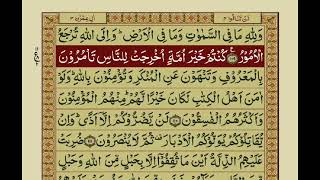 وَلِلّٰهِ مَا فِى السَّمٰوٰتِ وَمَا فِى الْاَرْضِ ؕ وَاِلَى اللّٰهِ تُرْجَعُ
الْاُمُوْرُ ۝ كُنْتُمْ خَيْرَ اُمَّةٍ اُخْرِجَتْ لِلنَّاسِ تَاْمُرُوْنَ
بِالْمَعْرُوْفِ وَتَنْهَوْنَ عَنِ الْمُنْكَرِ وَتُؤْمِنُوْنَ بِاللّٰهِ ؕ وَلَوْ
اٰمَنَ اَهْلُ الْكِتٰبِ لَكَانَ خَيْرًا لَّهُمْ ؕ مِنْهُمُ الْمُؤْمِنُوْنَ
وَاَكْثَرُهُمُ الْفٰسِقُوْنَ ۝ لَنْ يَّضُرُّوْكُمْ اِلَّاۤ اَذًى ؕ وَاِنْ
يُّقَاتِلُوْكُمْ يُوَلُّوْكُمُ الْاَدْبَارَ ۫ ثُمَّ لَا يُنْصَرُوْنَ ۝ ضُرِبَتْ
عَلَيْهِمُ الذِّلَّةُ اَيْنَ مَا ثُقِفُوْۤا اِلَّا بِحَبْلٍ مِّنَ اللّٰهِ وَحَبْلٍ